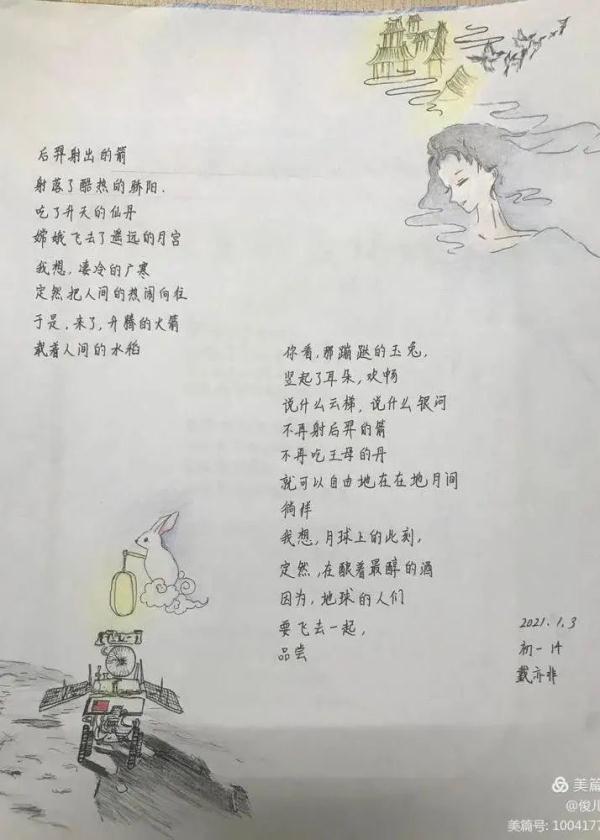 后羿射出的箭
射落了酷热的骄阳.
吃了升天的仙丹
嫦娥飞去了遥远的月宫
我想,凄冷的广寒
定然把人间的热闹向往
于是,来了,升腾的火箭
载着人间的水稻
你看,那蹦跶的玉兔,
竖起了耳朵,欢畅
说什么云梯,说什么银河
不再射后羿的箭
不再吃王母的丹
就可以自由地在在地月间
徜徉
我想,月球上的此刻,
定然,在酿着最醇的酒
因为,地球的人们
要飞去一起,
品尝
2021.1.3
初一14
戴亦非
美篇
@俊儿
美篇号: 1004177